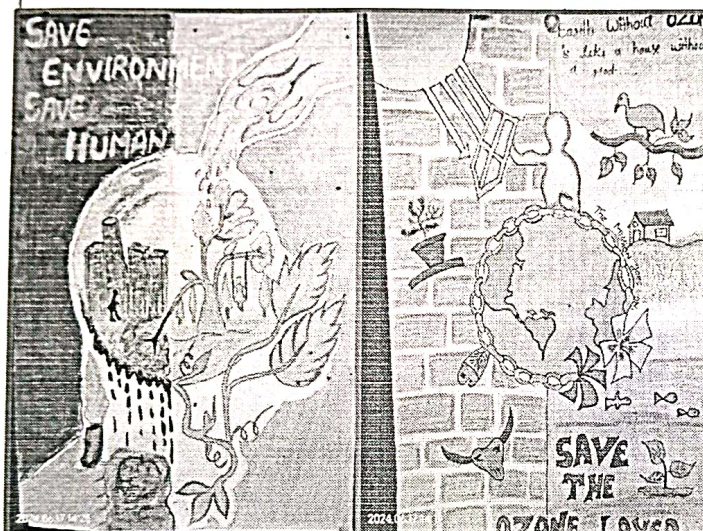 SAVE
ENVIRONMENT
SAVE
HUMAN
Earth Without OZON
is like a house withou
a
SAVE
THE
OZONE LAYER
2024